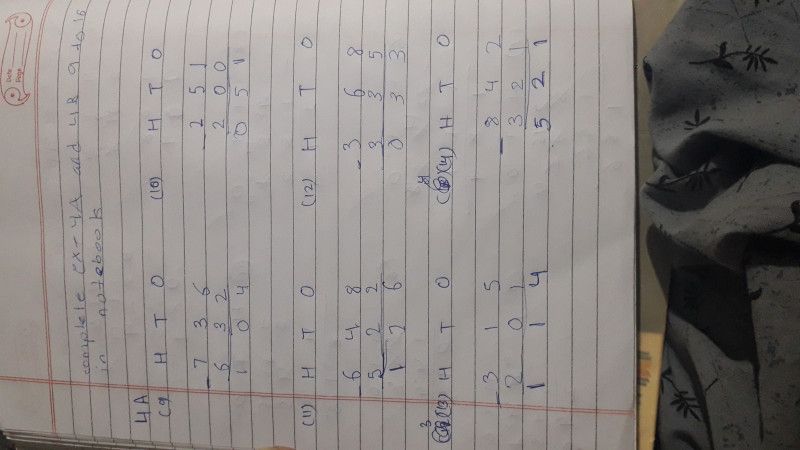 Date
Page
complete ex-4A and 4B 9 to 15
in notebook
4A
(9) H T O (10) H T O
- 7 3 6 - 2 5 1
6 3 2 2 0 0
1 0 4 0 5 1
(11) H T O (12) H T O
- 6 4 8 - 3 6 8
5 2 2 3 3 5
1 2 6 0 3 3
(13) H T O (14) H T O
- 3 1 5 - 8 4 2
2 0 1 3 2 1
1 1 4 5 2 1